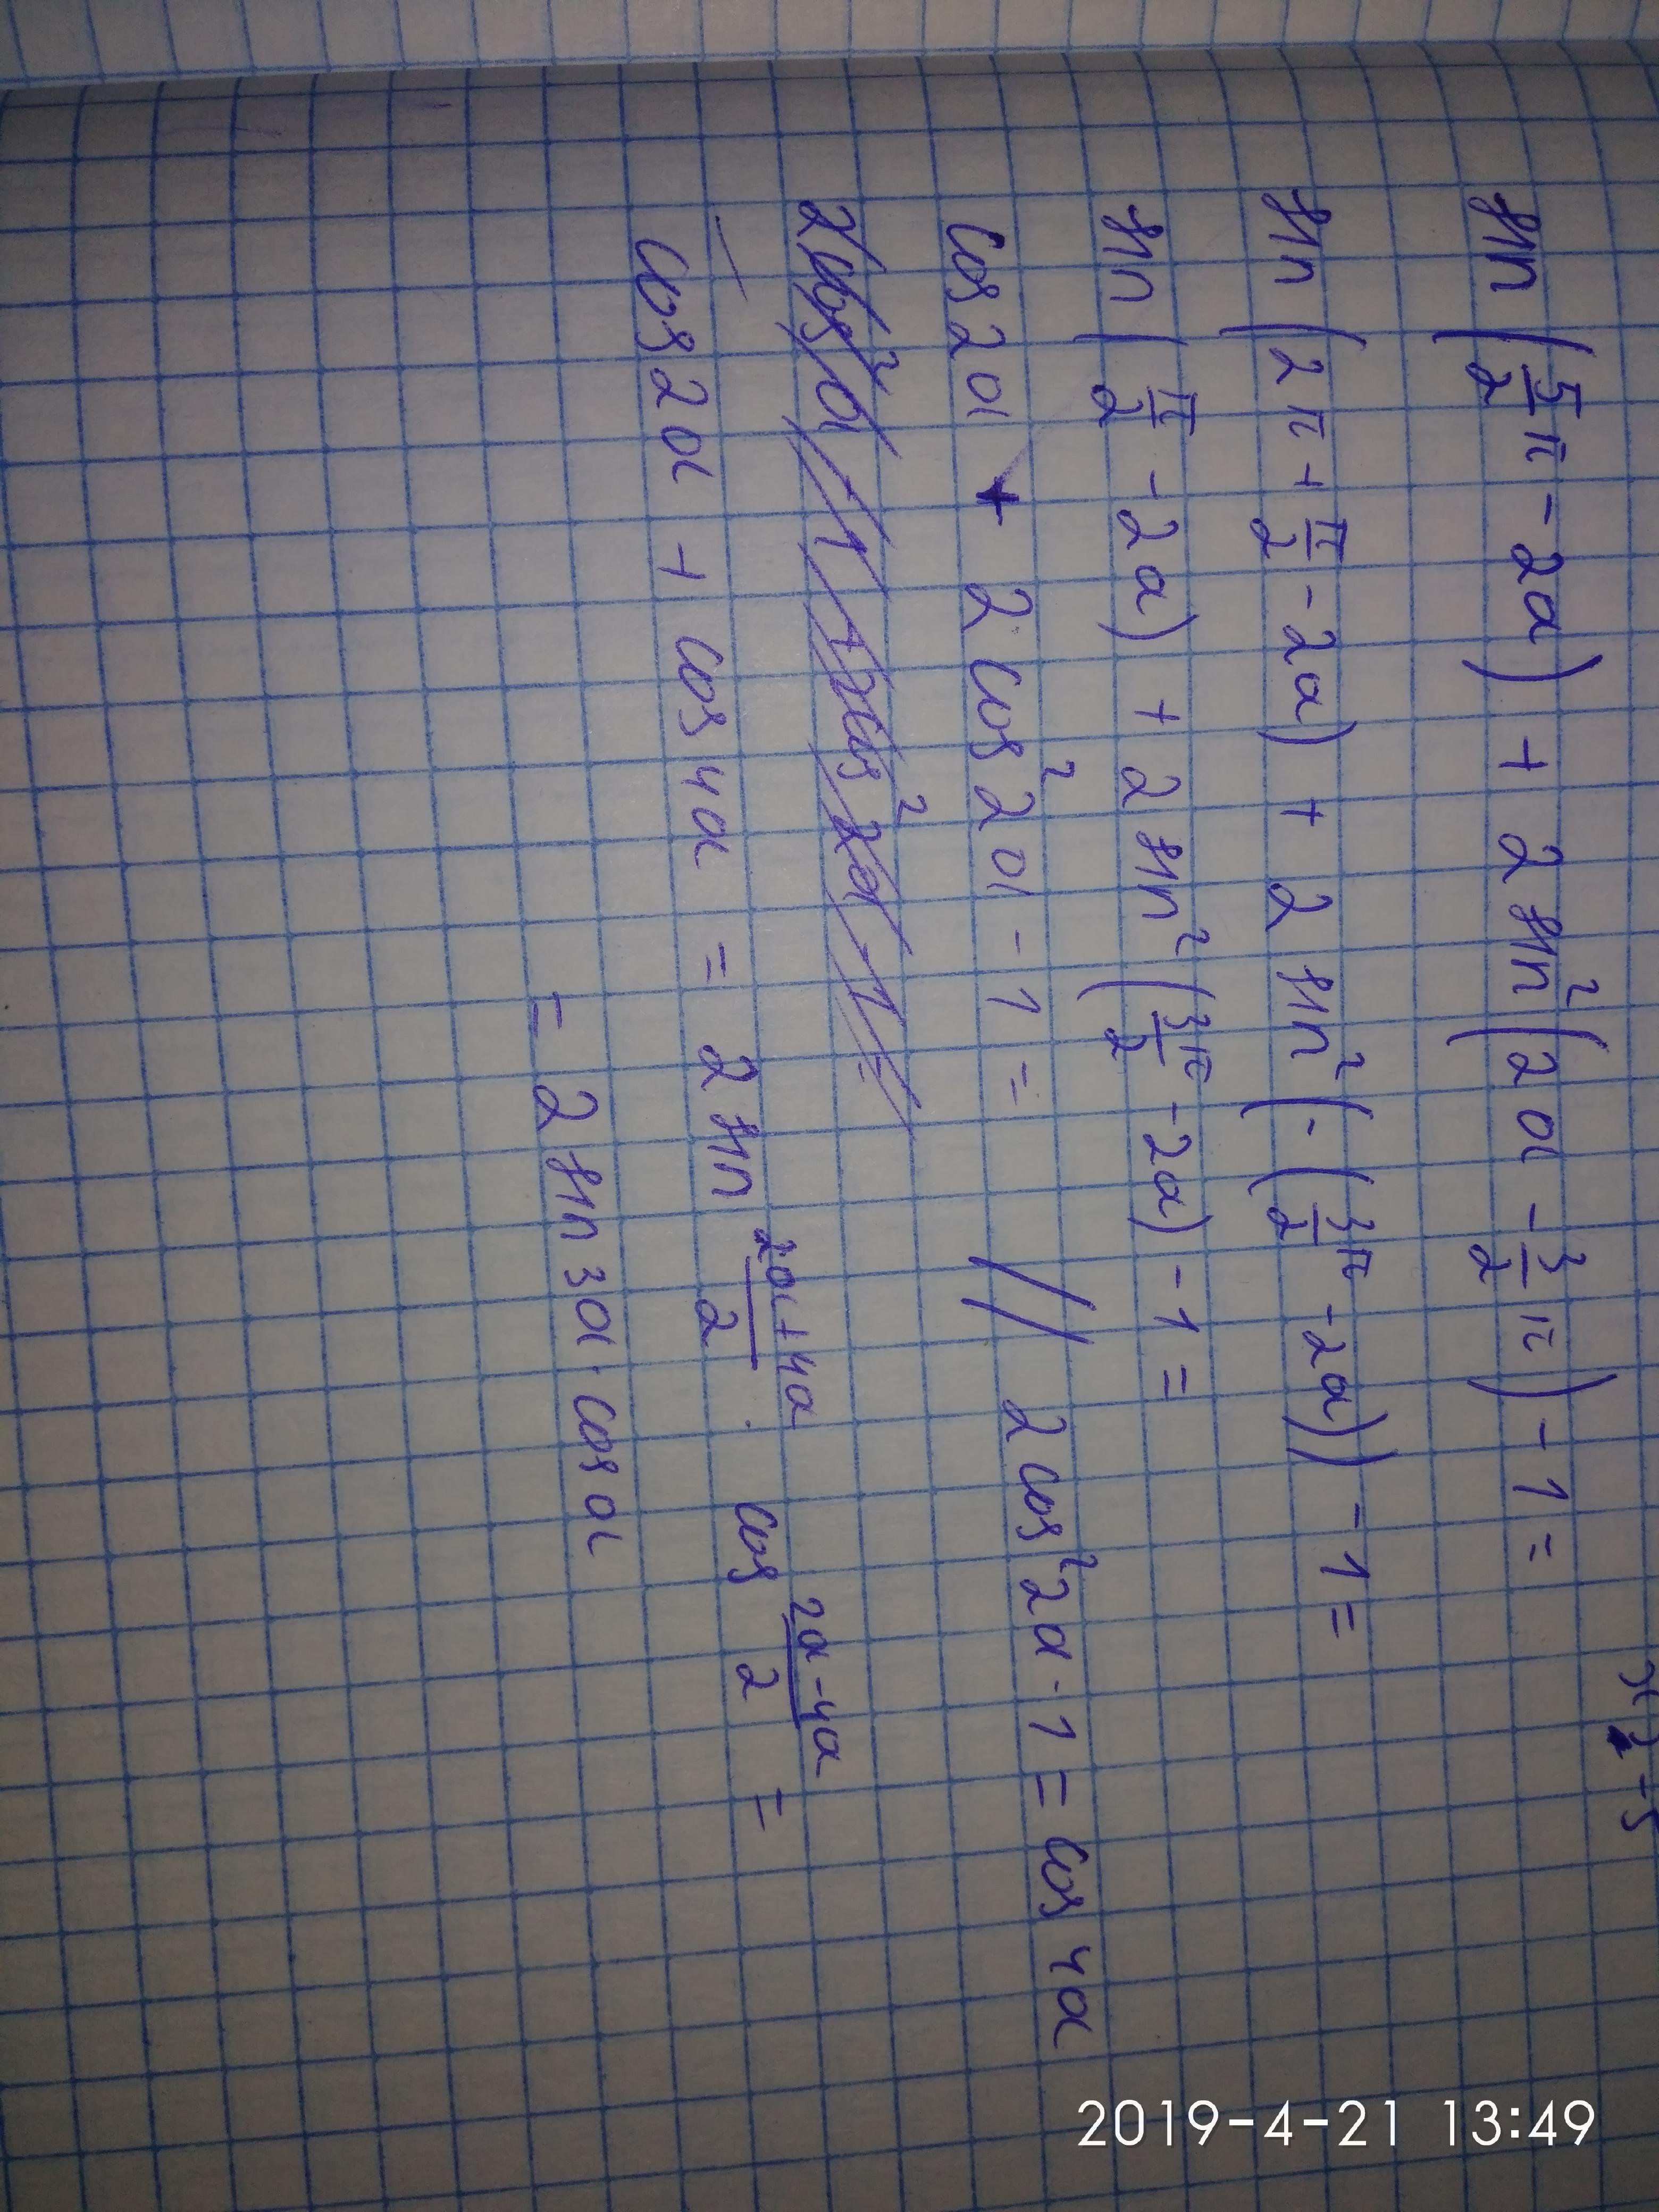 x₂ - 5
sin(5/2 π - 2α) + 2 sin²(2α - 3/2 π) - 1 =
sin(2π + π/2 - 2α) + 2 sin²(-(3π/2 - 2α)) - 1 =
sin(π/2 - 2α) + 2 sin²(3π/2 - 2α) - 1 =
cos 2α + 2 cos² 2α - 1 = // 2 cos² 2α - 1 = cos 4α
cos 2α + cos 4α = 2 sin (2α + 4α)/2 · cos (2α - 4α)/2 =
= 2 sin 3α · cos α
2019-4-21 13:49